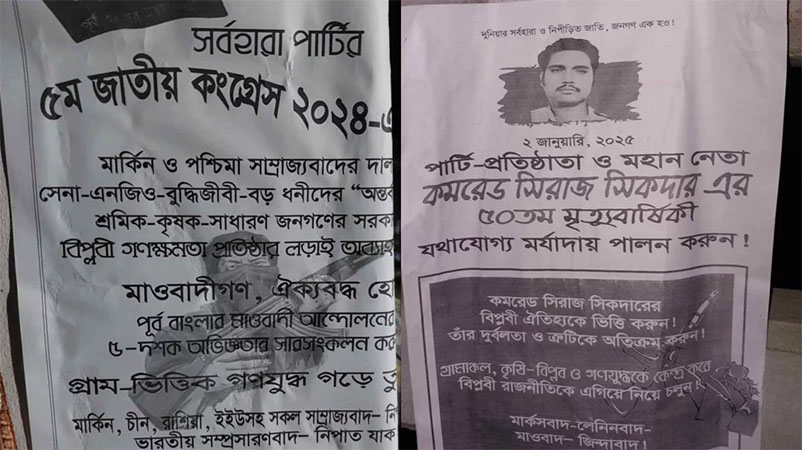 সর্বহারা পার্টির
৫ম জাতীয় কংগ্রেস ২০২৪-এ
মার্কিন ও পশ্চিমা সাম্রাজ্যবাদের দাল
সেনা-এনজিও-বুদ্ধিজীবী-বড় ধনীদের “অন্তর্ব
শ্রমিক-কৃষক-সাধারণ জনগণের সরকা
বিপ্লবী গণক্ষমতা প্রতিষ্ঠার লড়াই অব্যাহ
মাওবাদীগণ, ঐক্যবদ্ধ হো
পূর্ব বাংলার মাওবাদী আন্দোলনের
৫-দশক অভিজ্ঞতার সারসংকলন কর
গ্রাম-ভিত্তিক গণযুদ্ধ গড়ে তু
মার্কিন, চীন, রাশিয়া, ইইউসহ সকল সাম্রাজ্যবাদ- নি
ভারতীয় সম্প্রসারণবাদ- নিপাত যাক
দুনিয়ার সর্বহারা ও নিপীড়িত জাতি, জনগণ এক হও!
২ জানুয়ারি, ২০২৫
পার্টি-প্রতিষ্ঠাতা ও মহান নেতা
কমরেড সিরাজ সিকদার এর
৫০তম মৃত্যুবার্ষিকী
যথাযোগ্য মর্যাদায় পালন করুন!
কমরেড সিরাজ সিকদারের
বিপ্লবী ঐতিহ্যকে ভিত্তি করুন!
তাঁর দুর্বলতা ও ত্রুটিকে অতিক্রম করুন!
গ্রামাঞ্চল, কৃষি-বিপ্লব ও গণযুদ্ধকে কেন্দ্র করে
বিপ্লবী রাজনীতিকে এগিয়ে নিয়ে চলুন!
মার্কসবাদ-লেনিনবাদ-
মাওবাদ- জিন্দাবাদ!